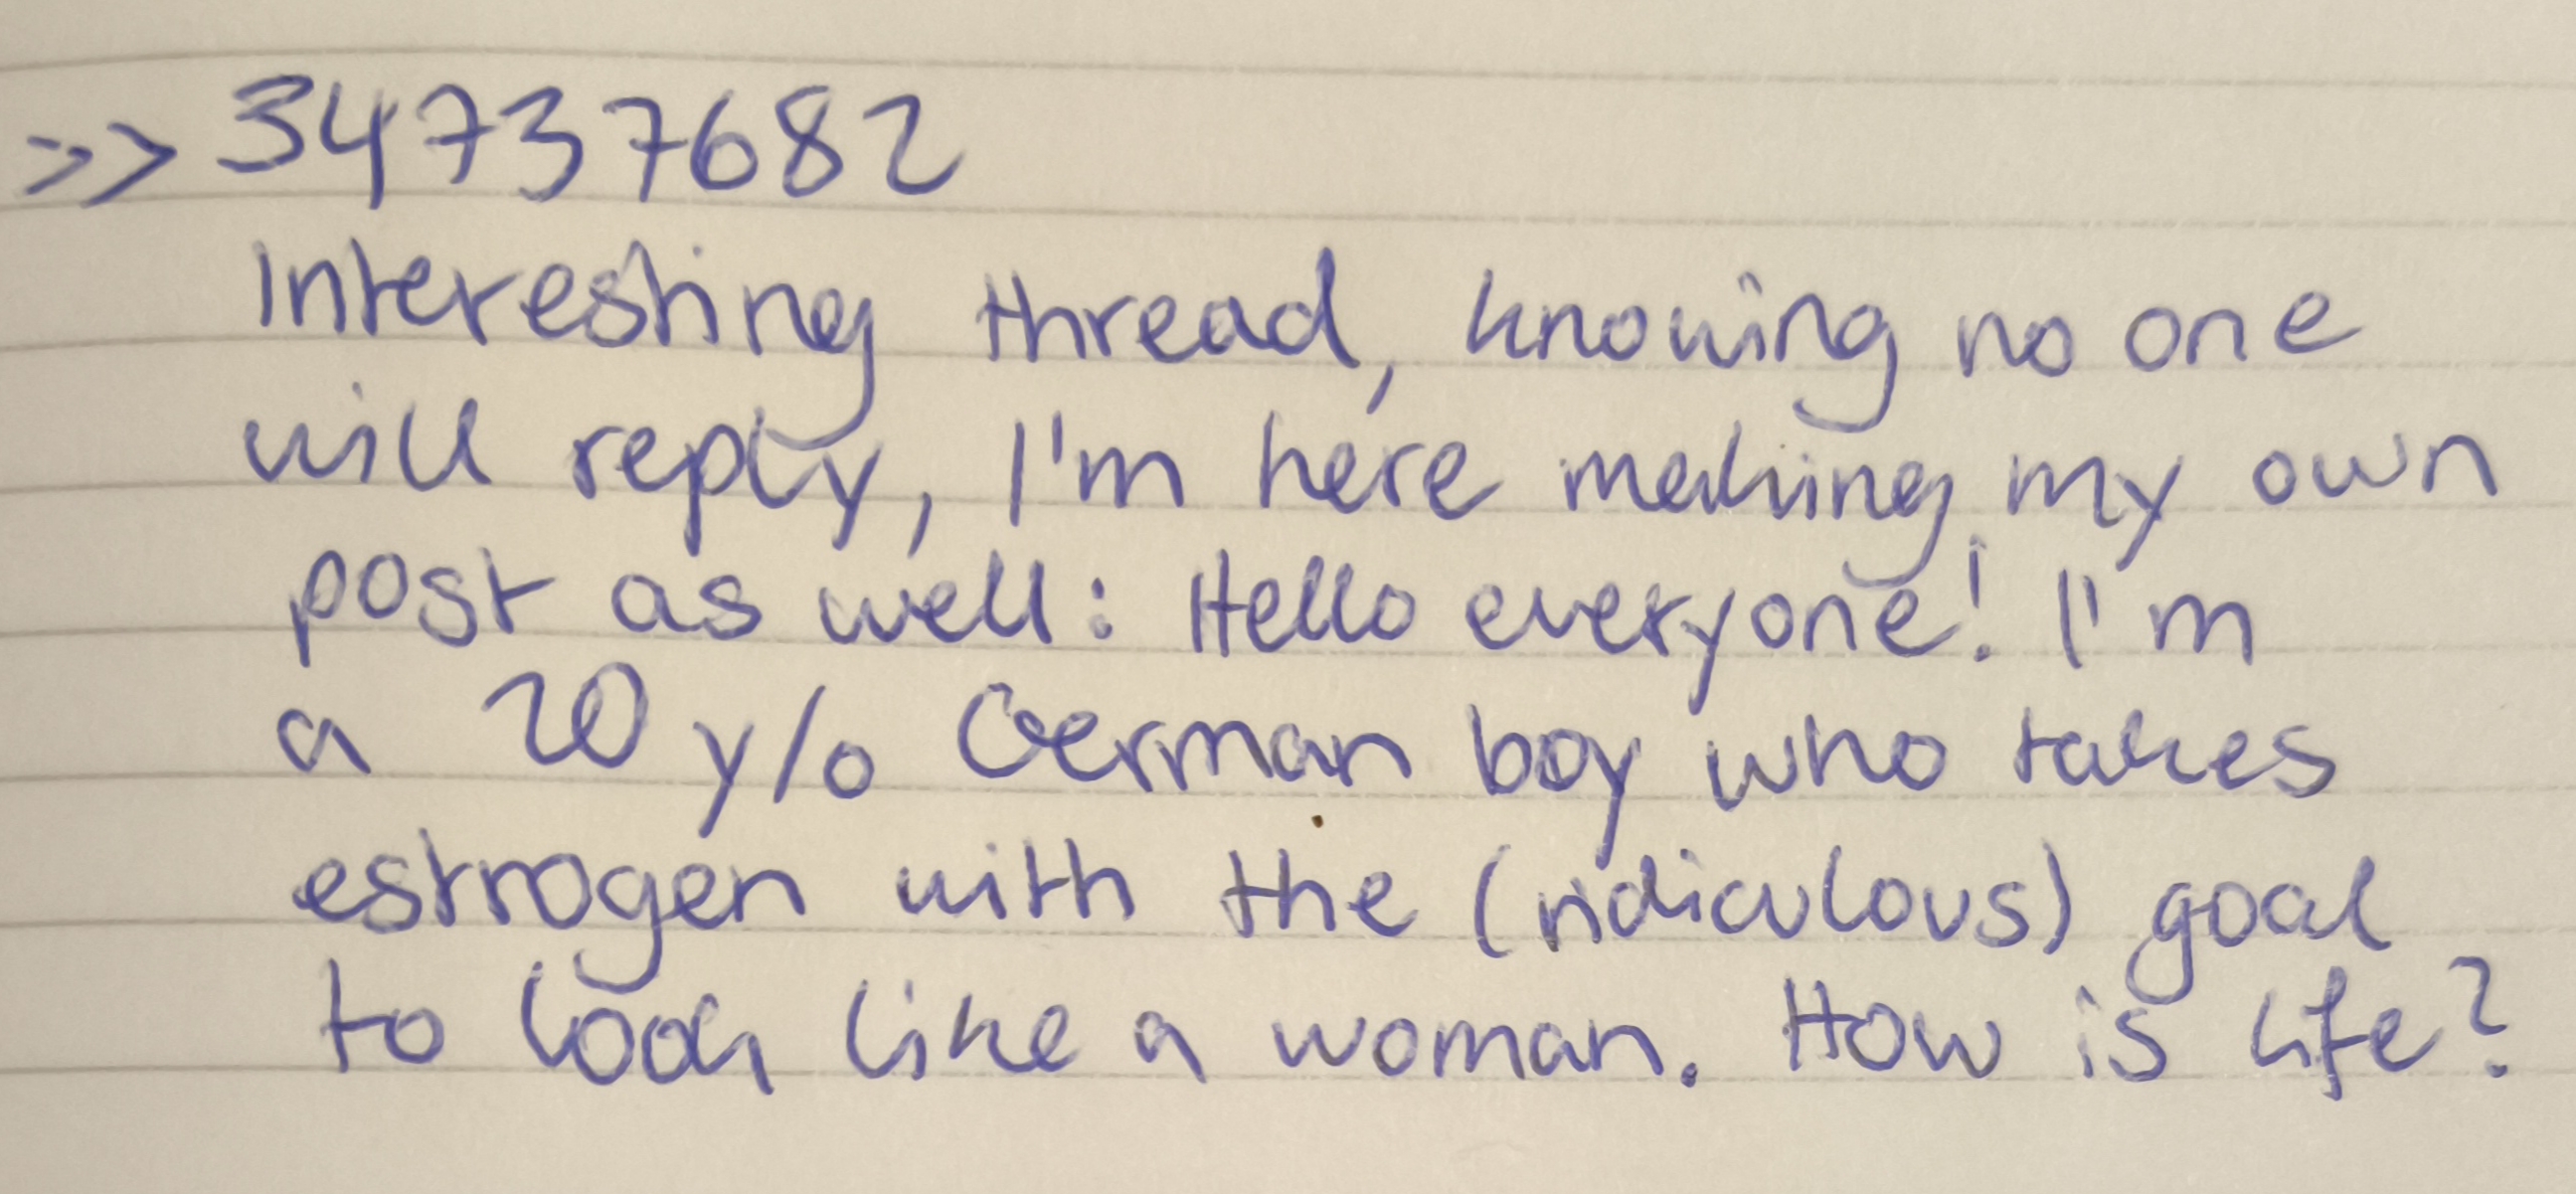 >>34737682
Interesting thread, knowing no one
will reply, I'm here making my own
post as well: Hello everyone! I'm
a 20 y/o German boy who takes
estrogen with the (ridiculous) goal
to look like a woman. How is life?